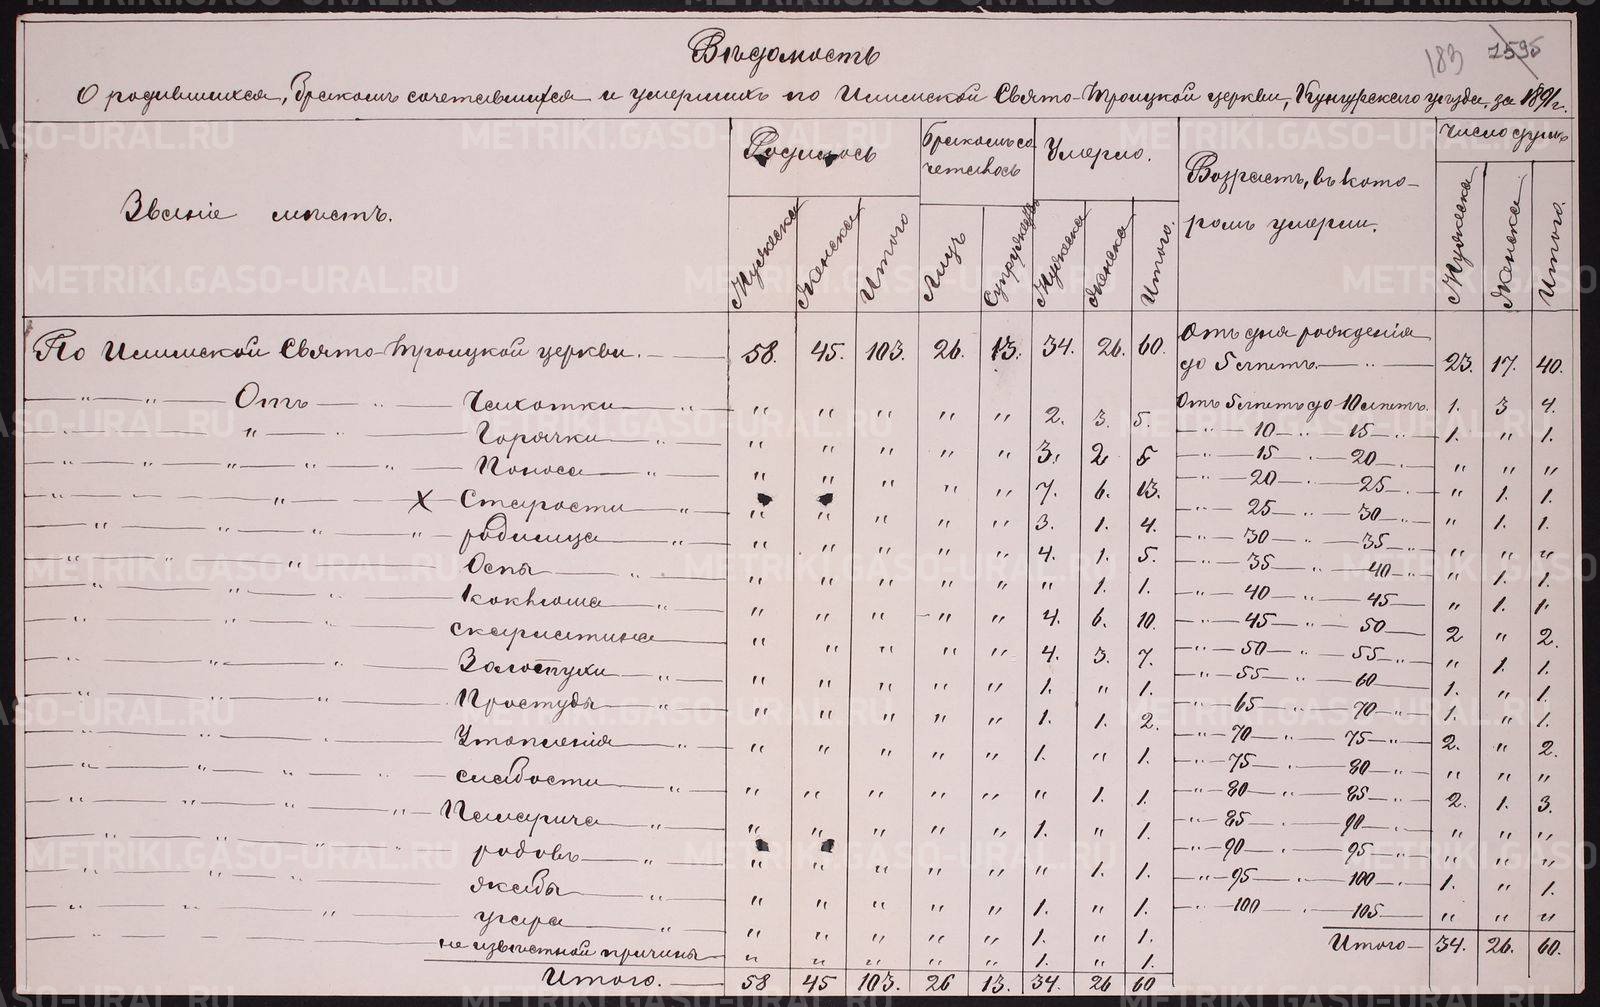 Вѣдомость
183 1595
О родившихся, бракомъ сочетавшихся и умершихъ по Илимской Свято-Троицкой церкви, Кунгурскаго уѣзда, за 1891 г.
Званіе мѣстъ. Родилось Бракомъ сочеталось Умерло. Возрастъ, въ которомъ умерли. Число душъ
Мужеска Женска Итого Лицъ Супружествъ Мужеска Женска Итого. Мужеска Женска Итого.
По Илимской Свято-Троицкой церкви. 58. 45. 103. 26. 13. 34. 26. 60. Отъ дня рожденія
до 5 лѣтъ 23. 17. 40.
" " Отъ " Чахотки " " " " " " 2. 3. 5. Отъ 5 лѣтъ до 10 лѣтъ. 1. 3 4.
" " " Горячки " " " " " " 3. 2 5 " 10 " 15 " 1. " 1.
" " " " " Поноса " " " " " " 7. 6. 13. " 15 " 20 " " " "
" " Х Старости " " " " " " 3. 1. 4. " 20 " 25 " " 1. 1.
" " " " родимца " " " " " " 4. 1. 5. " 25 " 30 " " 1. 1.
" " " Оспы " " " " " " " 1. 1. " 30 " 35 " " " "
" " " Коклюша " " " " " " 4. 6. 10. " 35 " 40 " " 1. 1.
скарлатина " " " " " 4. 3. 7. " 40 " 45 " 1. 1.
" " " Золотухи " " " " " " 1. " 1. " 45 " 50 2 " 2.
" " " Простуды " " " " " " 1. 1. 2. " 50 " 55 " " 1. 1.
Утопленія " " " " " " 1. " 1. " 55 " 60 1. " 1.
" " " " слабости " " " " " " " 1. 1. " 65 " 70 " 1. " 1.
" " " " Паларича " " " " " " 1. " 1. " 70 " 75 " 2. " 2.
" " " родовъ " " " " " " " 1. 1. " 75 " 80 " " " "
" " " язвы " " " " " " 1. " 1. " 80 " 85 " 2. 1. 3.
" " " угара " " " " " " 1. " 1. " 85 " 90 " " "
" " неизвѣстной причины " " " " " 1. " 1. " 90 " 95 " " " "
" 95 " 100 " 1. " 1.
" 100 " 105 " " "
Итого 34. 26. 60.
Итого. 58 45 103. 26 13. 34. 26 60
METRIKI.GASO-URAL.RU